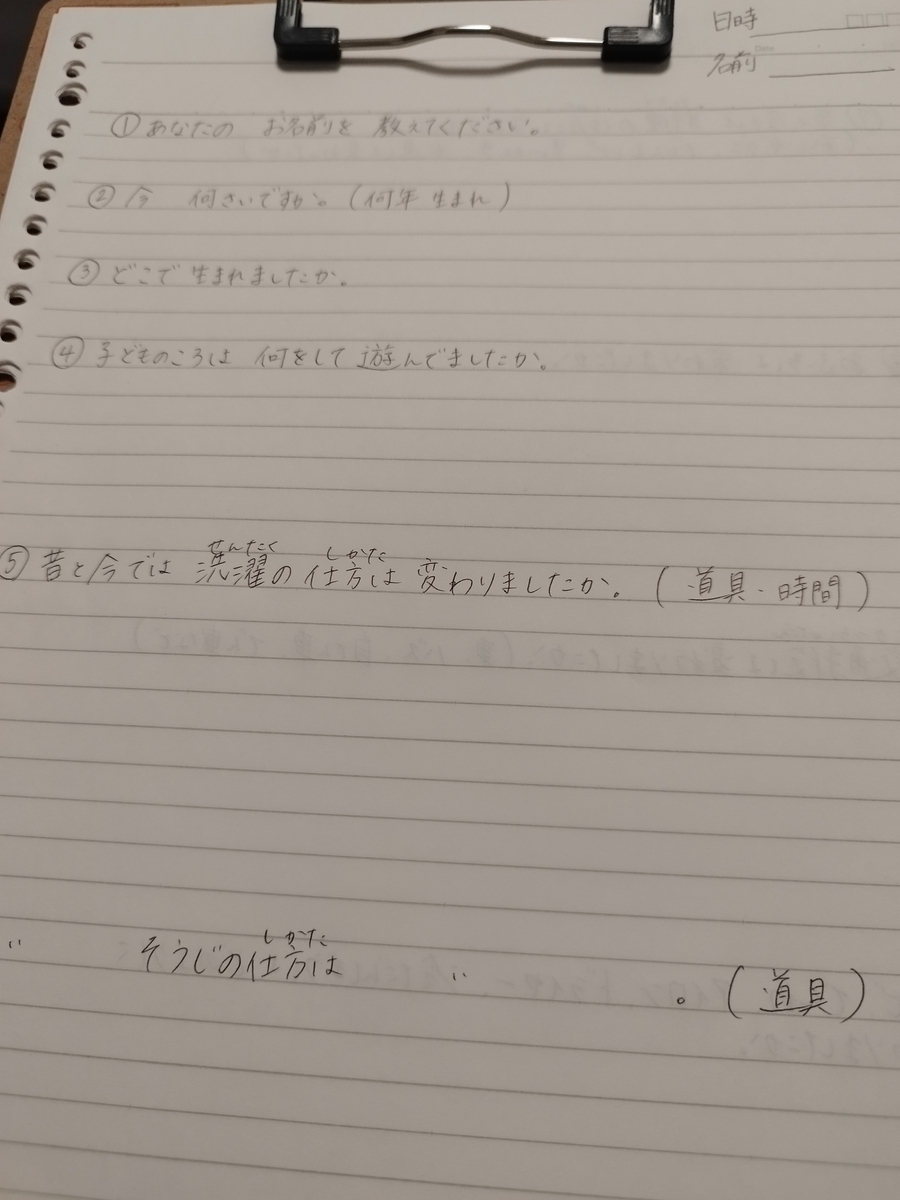 日時
名前
①あなたの お名前を 教えてください。
②今 何さいですか。(何年 生まれ)
③どこで 生まれましたか。
④子どものころは 何をして遊んでましたか。
せんたく しかた
⑤昔と今では 洗濯の 仕方は 変わりましたか。(道具・時間)
しかた
〃 そうじの仕方は 〃 。(道具)